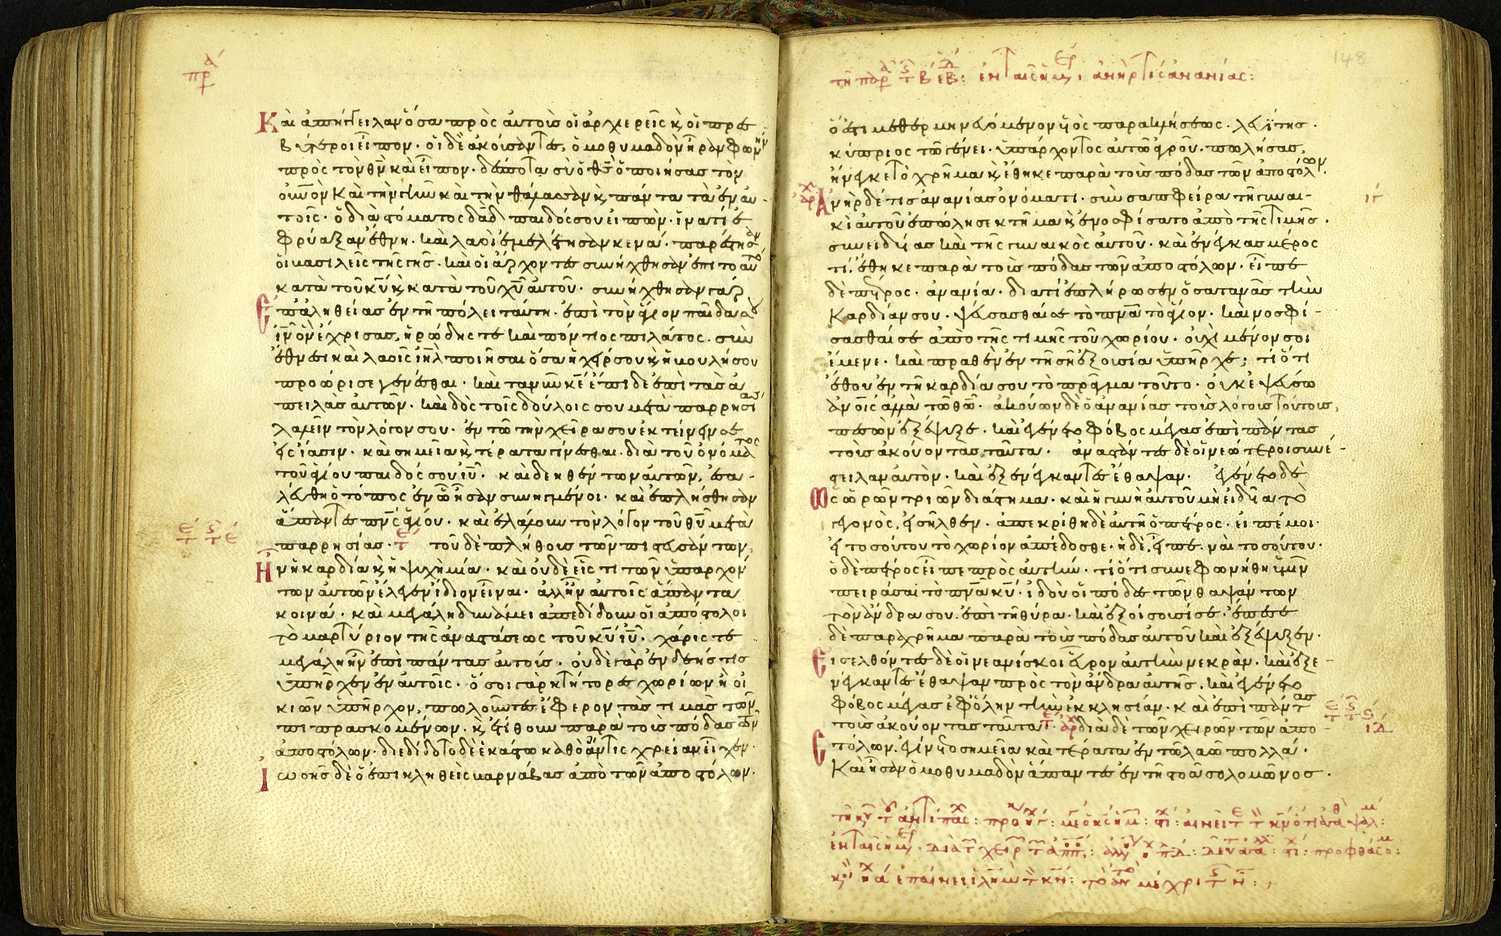 Καὶ ἀπήγγειλαν ὅσα πρὸς αὐτοὺς οἱ ἀρχιερεῖς κ, οἱ πρεσ
βύτεροι εἶπον· οἱ δὲ ἀκούσαντες, ὁμοθυμαδὸν ἦραν φωνὴν
πρὸς τὸν θν̄ καὶ εἶπον· δέσποτα σὺ ὁ θς̄ ὁ ποιήσας τὸν
οὐνο̄ν καὶ τὴν γῆν καὶ τὴν θάλασσαν κ, πάντα τὰ ἐν αὐ-
τοῖς· ὁ διὰ στόματος δᾱδ παιδός σου εἰπών· ἵνα τί ἐ
φρύαξαν ἔθνη· καὶ λαοὶ ἐμελέτησαν κενά· παρέστησαν
οἱ βασιλεῖς τῆς γῆς· καὶ οἱ ἄρχοντες συνήχθησαν ἐπι το αὐτὸ
κατὰ τοῦ κῡ κ, κατὰ τοῦ χῡ αὐτοῦ· συνήχθησαν γὰρ
ἐπαληθείας ἐν τῇ πόλει ταύτη· ἐπὶ τὸν ἅγιον παῖδα σου
ιν̄ ὃν ἔχρισας, ἡρώδης τὲ καὶ πόντιος πιλάτος· σὺν
ἔθνεσι καὶ λαοῖς ιηλ̄ ποιῆσαι ὅσα ἡ χείρ σου κ, ἡ βουλή σου
προώρισε γενέσθαι· καὶ τανῦν κε̄ ἔπιδε ἐπὶ τὰς ἀ
πειλὰς αὐτῶν· καὶ δὸς τοῖς δούλοις σου μετὰ παρρησίας
λαλεῖν τὸν λόγον σου· ἐν τῶ τὴν χεῖρα σου ἐκτείνειν σε
εἰς ἴασιν· καὶ σημεῖα κ, τέρατα γίνεσθαι διὰ τοῦ ὀνόματος
τοῦ ἁγίου παιδός σου ιῡ· καὶ δεηθέντων αὐτῶν, ἐσα-
λεύθη ὁ τόπος ἐν ᾧ ἦσαν συνηγμένοι· καὶ ἐπλήσθησαν
ἅπαντες πνς̄ ἁγίου· καὶ ἐλάλουν τὸν λόγον τοῦ θῡ μετὰ
παρρησίας· τοῦ δὲ πλήθους τῶν πιστευσάντων
ἦν ἡ καρδία κ, ἡ ψυχὴ μία· καὶ οὐδὲ εἷς τι τῶν ὑπαρχόν
των αὐτῶν ἔλεγεν ἴδιον εἶναι· ἀλλ' ἦν αὐτοῖς ἅπαντα
κοινά· καὶ μεγάλη δυνάμει ἀπεδίδουν οἱ ἀπόστολοι
τὸ μαρτύριον τῆς ἀναστάσεως τοῦ κῡ ιῡ· χάρις τὲ
μεγάλη ἦν ἐπὶ πάντας αὐτούς· οὐδὲ γὰρ ἐνδεής τις
ὑπῆρχεν ἐν αὐτοῖς· ὅσοι γὰρ κτήτορες χωρίων ἢ οἰ
κιῶν ὑπῆρχον, πωλοῦντες ἔφερον τὰς τιμὰς τῶν
πιπρασκομένων· κ, ἐτίθουν παρὰ τοὺς πόδας τῶν
ἀποστόλων· διεδίδοτο δὲ ἑκάστω καθὸ ἄν τις χρείαν εἶχεν·
Ιωσῆς δὲ ὁ ἐπικληθεὶς βαρνάβας ἀπὸ τῶν ἀποστόλων·
148
ὅ ἐστι μεθερμηνευόμενον υἱὸς παρακλήσεως· λευίτης·
κύπριος τῶ γένει· ὑπάρχοντος αὐτῶ ἀγροῦ· πωλήσας,
ἤνεγκε τὸ χρῆμα κ, ἔθηκε παρὰ τοὺς πόδας τῶν ἀποστόλων·
Ανὴρ δέ τις ἀνανίας ὀνόματι· σὺν σαπφείρα τῆ γυναι-
κὶ αὐτοῦ ἐπώλησε κτῆμα κ, ἐνοσφίσατο ἀπὸ τῆς τιμῆς·
συνειδυίας καὶ τῆς γυναικὸς αὐτοῦ· καὶ ἐνέγκας μέρος
τι, ἔθηκε παρὰ τοὺς πόδας τῶν ἀποστόλων· εἶπε
δὲ πέτρος· ἀνανία· διατί ἐπλήρωσεν ὁ σατανᾶς τὴν
καρδίαν σου· ψεύσασθαί σε τὸ πνᾱ τὸ ἅγιον· καὶ νοσφί-
σασθαί σε ἀπὸ τῆς τιμῆς τοῦ χωρίου· οὐχὶ μένον σοι
ἔμενε· καὶ πραθὲν ἐν τῆ σῆ ἐξουσία ὑπῆρχε; τί ὅτι
ἔθου ἐν τῆ καρδία σου τὸ πρᾶγμα τοῦτο· οὐκ ἐψεύσω
ἀνοις̄ ἀλλὰ τῶ θω̄· ἀκούων δὲ ὁ ἀνανίας τοὺς λόγους τούτους,
πεσὼν ἐξέψυξε· καὶ ἐγένετο φόβος μέγας ἐπὶ πάντας
τοὺς ἀκούοντας ταῦτα· ἀναστάντες δὲ οἱ νεώτεροι συνέ-
στειλαν αὐτόν· καὶ ἐξενέγκαντες ἔθαψαν· ἐγένετο δὲ
ὡς ὡρῶν τριῶν διάστημα· καὶ ἡ γυνὴ αὐτοῦ μὴ εἰδυῖα τὸ
γεγονὸς, εἰσῆλθεν· ἀπεκρίθη δὲ αὐτῆ ὁ πέτρος· εἰπέ μοι·
εἰ τοσούτου τὸ χωρίον ἀπέδοσθε· ἡ δὲ, εἶπε· ναὶ τοσούτου·
ὁ δὲ πέτρος εἶπε πρὸς αὐτήν· τί ὅτι συνεφωνήθη ὑμῖν
πειράσαι τὸ πνᾱ κῡ· ἰδοὺ οἱ πόδες τῶν θαψάντων
τὸν ἄνδρα σου· ἐπὶ τῆ θύρα· καὶ ἐξοίσουσί σε· ἔπεσε
δὲ παραχρῆμα παρὰ τοὺς πόδας αὐτοῦ καὶ ἐξέψυξεν·
Εἰσελθόντες δὲ οἱ νεανίσκοι εὗρον αὐτὴν νεκράν· καὶ ἐξε-
νέγκαντες ἔθαψαν πρὸς τὸν ἄνδρα αὐτῆς· καὶ ἐγένετο
φόβος μέγας ἐφ' ὅλην τὴν ἐκκλησίαν· καὶ ἐπὶ πάντας
τοὺς ἀκούοντας ταῦτα· διὰ δὲ τῶν χειρῶν τῶν ἀπο
στόλων, ἐγίνετο σημεῖα καὶ τέρατα ἐν τῶ λαῶ πολλά·
Καὶ ἦσαν ὁμοθυμαδὸν ἅπαντες ἐν τῆ στοᾶ σολομῶνος·